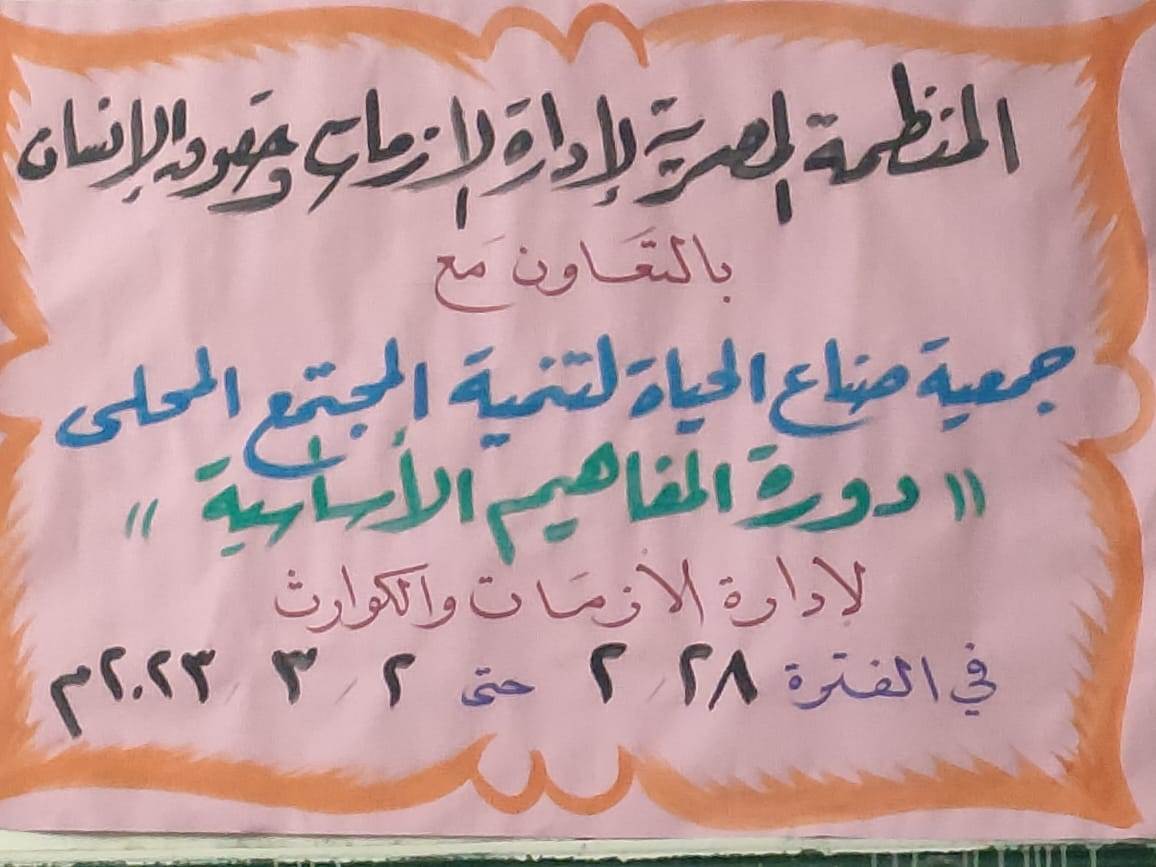 المنظمة المصرية لإدارة الازمات وحقوق الإنسان
بالتعَاون مَع
جمعية صناع الحياة لتنمية المجتمع المحلى
(( دورة المفاهيم الأساسية ))
لإدارة الأزمَات والكوارث
في الفترة ٢٨ / ٢ حتى ٢ / ٣ / ٢٠٢٣م